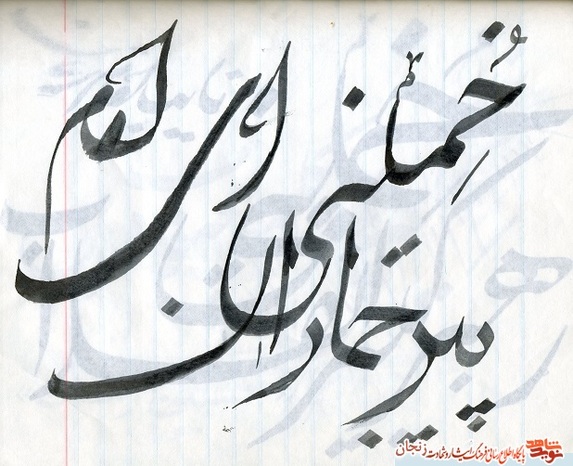 خُمِینی ای امام
پیر جماران
نوید شاهد پایگاه اطلاع رسانی فرهنگ ایثار و شهادت زنجان